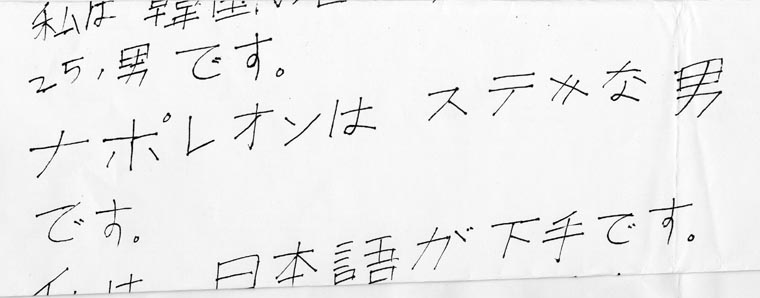 私は 韓国
25,男です。
ナポレオンは ステキな男
です。
日本語が下手です。